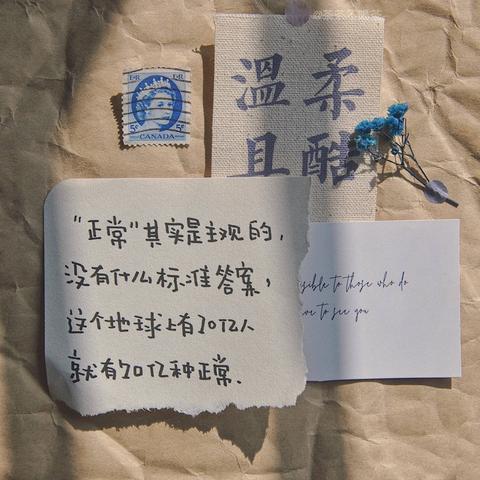 CANADA
5¢ 5¢
溫柔
且酷
“正常”其实是主观的，
没有什么标准答案，
这个地球上有70亿人
就有70亿种正常.
to those who do
to see you